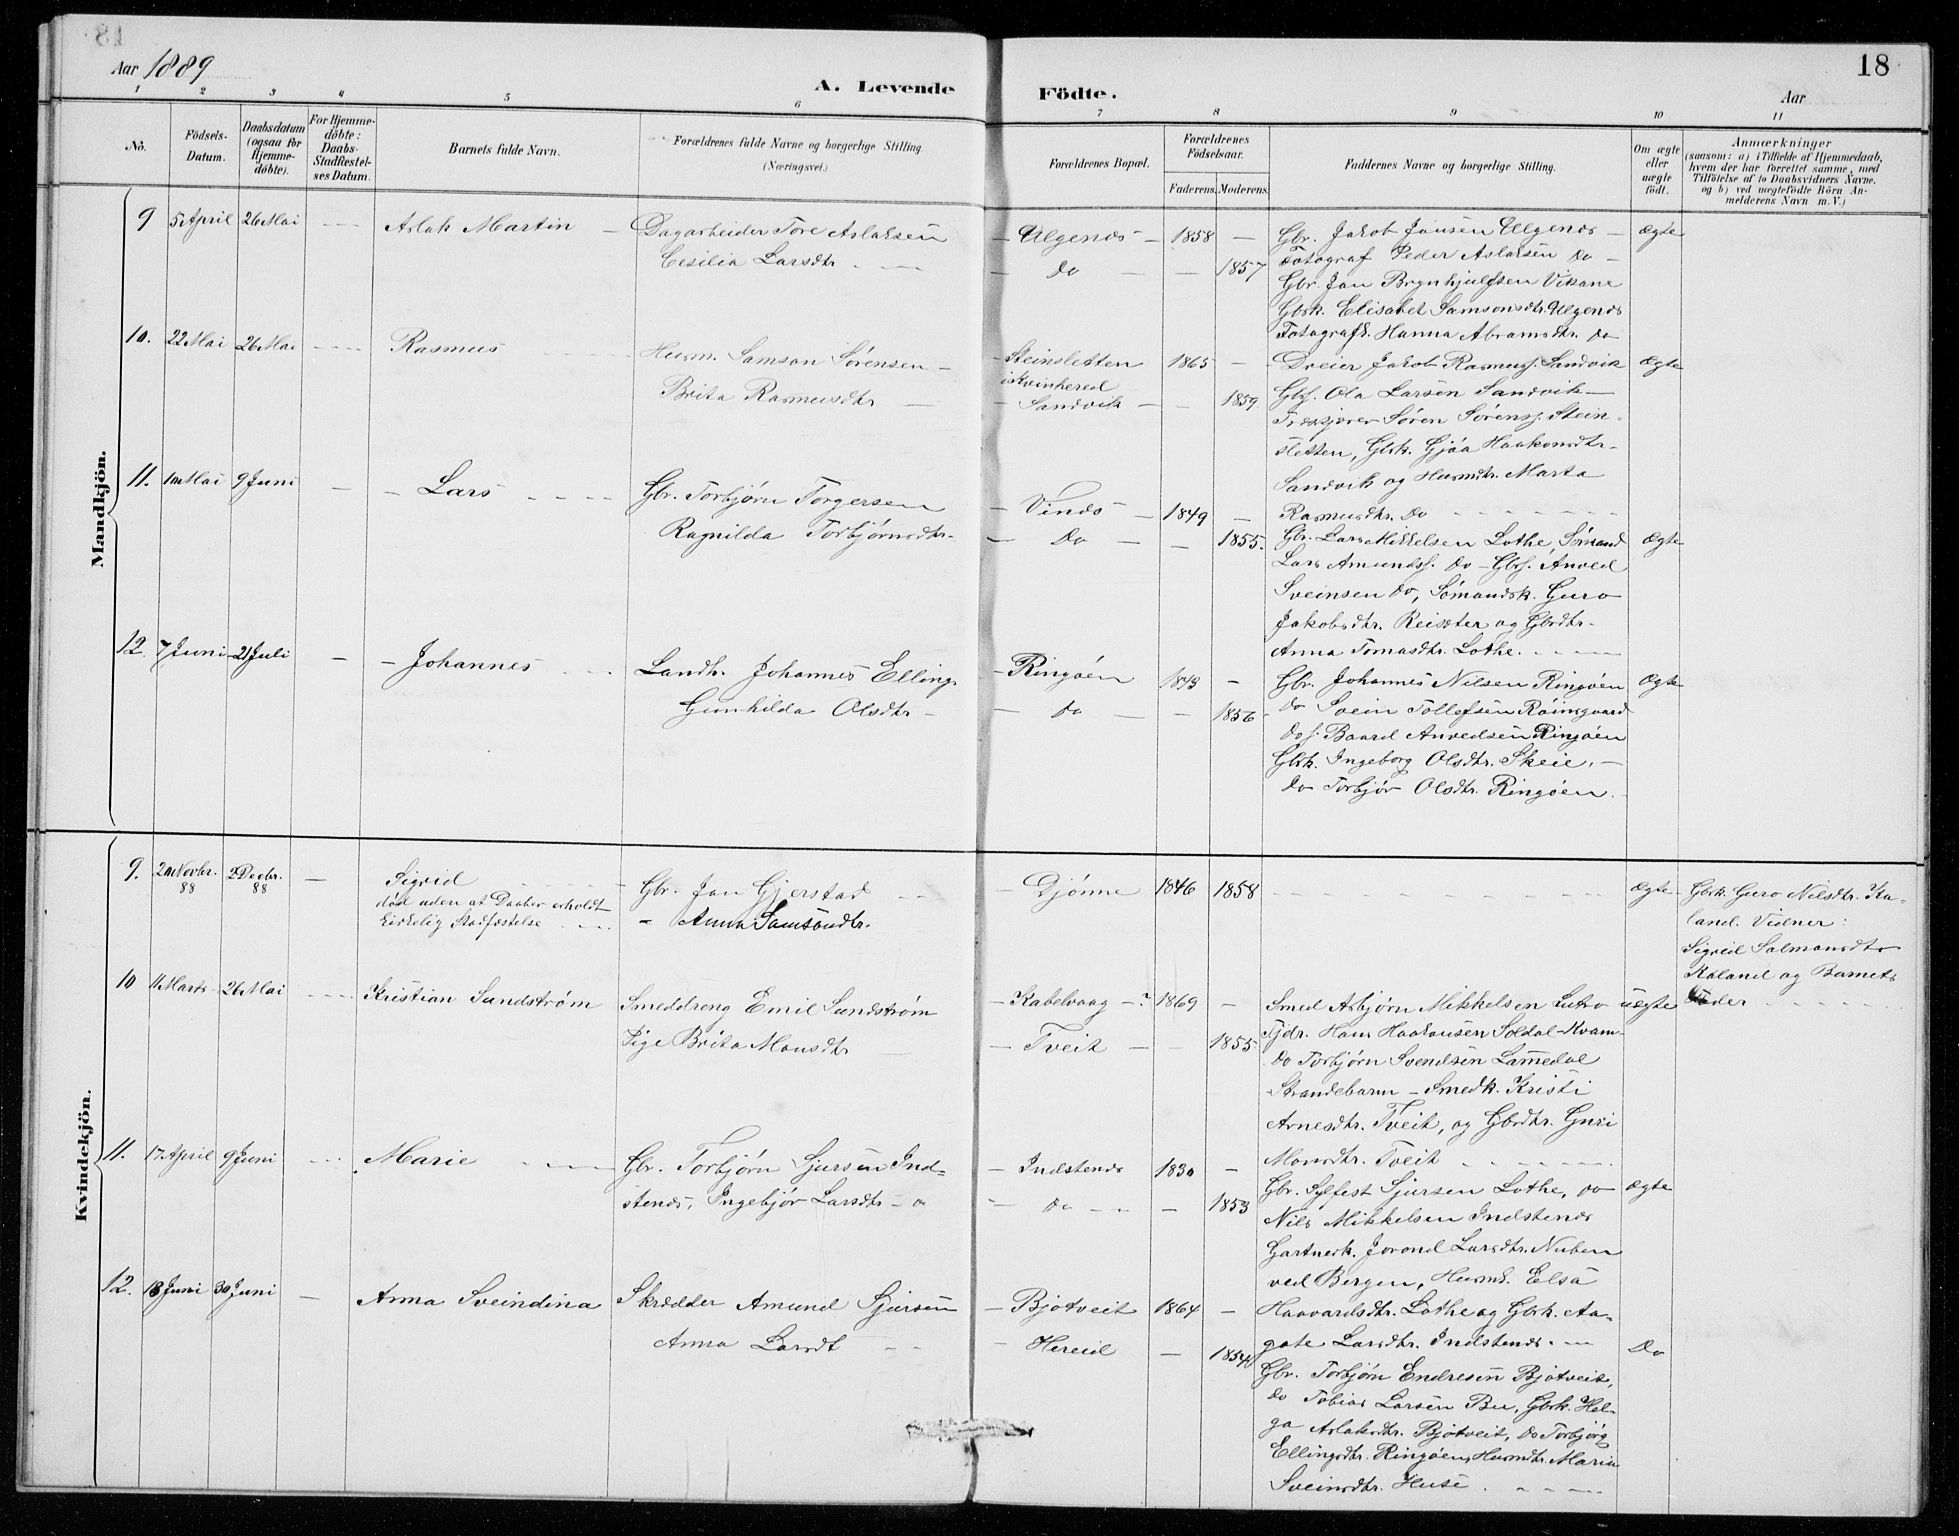 18
Aar 1889
A. Levende Födte.
Aar
1 2 3 4 5 6 7 8 9 10 11
No.
Födsels-Datum.
Daabsdatum (ogsaa for Hjemme-döbte).
For Hjemme-döbte: Daabs-Stadfæstel-ses Datum.
Barnets fulde Navn.
Forældrenes fulde Navne og borgerlige Stilling (Næringsvei.)
Forældrenes Bopæl.
Forældrenes Födselsaar.
Faderens. Moderens.
Faddernes Navne og borgerlige Stilling.
Om ægte eller uægte födt.
Anmærkninger
(saasom: a) i Tilfælde af Hjemmedaab,
hvem der har forrettet samme, med
Tilföielse af to Daabsvidners Navne.
og b) ved uægtefödte Börn An-
melderens Navn m. V.)
Mandkjön.
9 5 April 26 Mai — Aslak Martin —
Dagarbeider Tore Aslaksen
Cesilia Larsdtr.
Ulgenes — 1858 —
Do — — 1857
Gbr. Jakob Jansen Ulgenes —
Fotograf Peder Aslaksen Do —
Gbr. Jan Brynhjulfsen Vikane
Gbrk. Elisabet Samsonsdtr. Ulgenes
Fotografk. Hanna Abramsdtr. Do
ægte
10. 22 Mai 26 Mai — Rasmus
Husm. Samson Sørensen —
Brita Rasmusdtr —
Steinsletten 1865 —
i Kvinhered
Sandvik — — 1859
Dreier Jakob Rasmuss. Sandvik
Gbs. Ola Larsen Sandvik —
Træskjærer Søren Sørens. Stein-
sletten, Gbrk. Gjøa Haakonsdtr.
Sandvik og Husmdtr. Marta
Rasmusdtr. Do
Ægte
11. Mai 9 Juni — Lars
Gbr. Torbjørn Torgersen
Ragnilda Torbjørnsdtr.
Vines — 1849 —
Do — — 1855.
Gbr. Lars Mikkelsen Lothe, Sømand
Lars Amunds. Do — Gbs. Anved
Sveinsen Do, Sømandsk. Guro
Jakobsdtr. Reisæter og Gbrdtr.
Anna Tomasdtr. Lothe.
Ægte
12. 7 Juni 21 Juli — Johannes
Landh. Johannes Ellings
Gunhilda Olsdtr —
Ringøen 1843 —
Do — — 1856
Gbr. Johannes Nilsen Ringøen
Do Svein Tollefsen Røinsgaard
Do s. Baard Anvedsen Ringøen
Gbrk. Ingeborg Olsdtr. Skeie. —
Do Torbjør Olsdtr. Ringøen.
Ægte
Kvindekjön.
9. Novbr. 88 2 Decbr. 88 — Sigrid
død uden at Daaben erholdt
kirkelig Stadfæstelse
Gbr. Jan Gjerstad
— Anna Samsondtr.
Djønne 1846 1858
ægte
Gbrk. Guro Nilsdtr. Ka-
land. Vidner:
Sigrid Salmonsdtr
Kaland og Barnets
Fader
10 11 Marts 26 Mai — Kristian Sundstrøm
Smeddreng Emil Sundstrøm
Pige Brita Monsdtr
Kabelvaag — ? 1869 —
Tveit — — 1855.
Smed Asbjørn Mikkelsen Lutro
Gjdr. Hans Haakonsen Soldal Kvam
Do Torbjørn Svendsen Lammedal
Strandebarm — Smedk. Kristi
Arnesdtr. Tveit, og Gbrdtr. Guri
Monsdtr. Tveit
uægte
11. 17 April 9 Juni — Marie
Gbr. Torbjørn Sjursen Ind-
stenes, Ingebjør Larsdtr —
Indstenes 1830 —
Do — — 1853
Gbr. Sylfest Sjursen Lothe, Do
Nils Mikkelsen Indstenes
Gartnerk. Jorond Larsdtr. Nuben
ved Bergen, Husmk. Elsa
Haavardsdtr. Lothe og Gbrk. Aa-
gate Larsdtr. Indstenes. —
ægte
12. 13 Juni 30 Juni — Anna Sveindina
Skrædder Amund Sjursen
Anna Larsdt
Bjotveit 1864 —
Hereid — 1854
Gbr. Torbjørn Endresen Bjotveit,
Do Tobias Larsen Bu, Gbrk. Hel-
ga Aslaksdtr. Bjotveit, Do Torbjørg
Ellingsdtr. Ringøen, Husmdtr. Maria
Sveinsdtr. Huse
Do